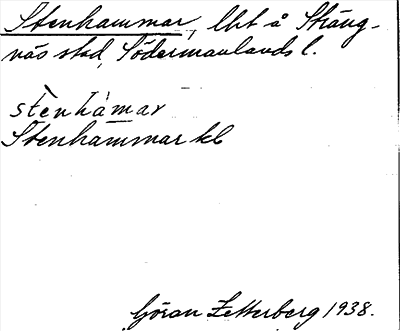 Stenhammar, lht å Sträng-
näs stad, Södermanlands l.
stènhámar
Stenhammar kb
Göran Zetterberg 1938.